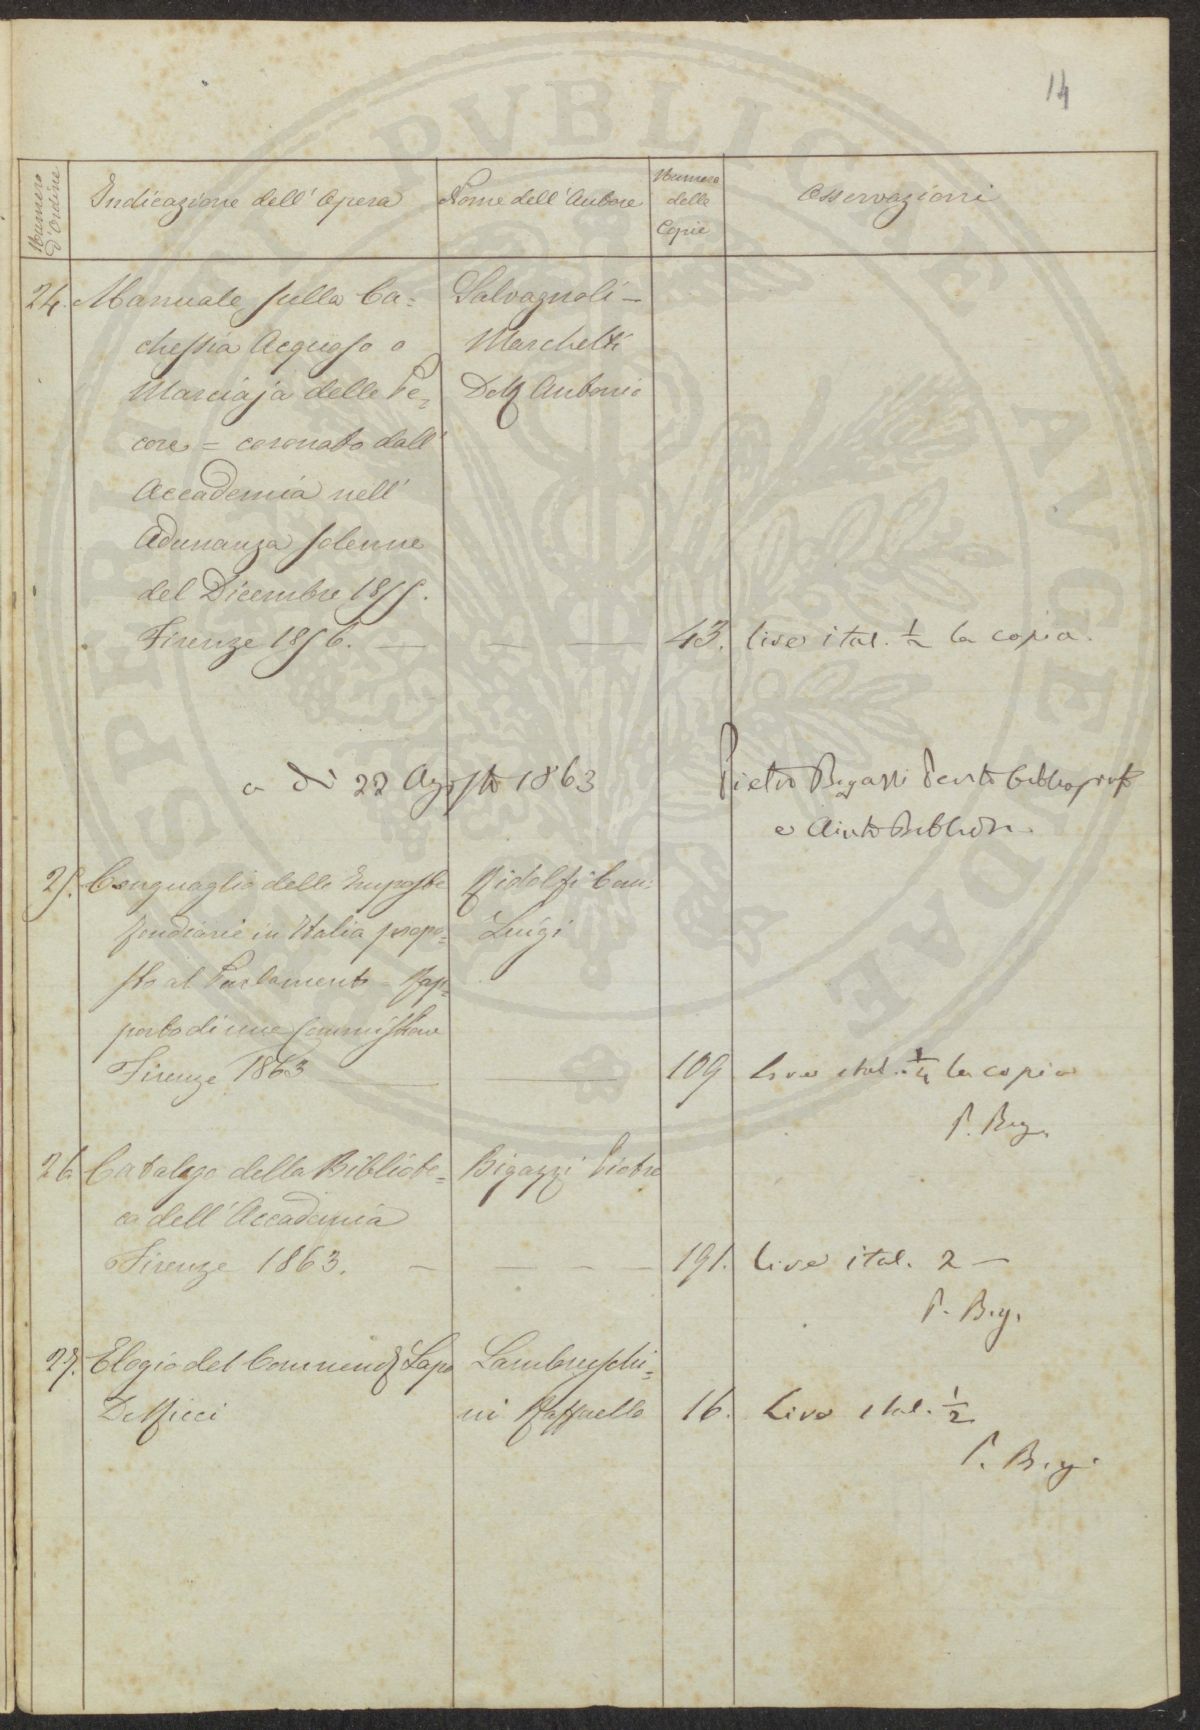 14
Numero d'Ordine
Indicazione dell'Opera
Nome dell'Autore
Numero delle Copie
Osservazioni
24. Manuale sulla Ca=
chessia Acquosa o
Marciaja delle Pe=
core = coronato dall'
Accademia nell'
Adunanza solenne
del Dicembre 1855.
Firenze 1856. —
Salvagnoli —
Marchetti
Dott Antonio
43. lire ital. ½ la copia.
a dì 22 Agosto 1863
Pietro Bigazzi Perito bibliografo
e Aiuto Bibliot
25. Conguaglio delle Imposte
fondiarie in Italia propo=
sto al Parlamento = Rap=
porto di una Commissione
Firenze 1863 —
Ridolfi Cav:
Luigi
109 lire ital. ¼ la copia
P. Big.
26 Catalogo della Bibliote=
ca dell'Accademia
Firenze 1863. —
Bigazzi Pietro
191. lire ital. 2 —
P. Big.
27. Elogio del Commend Lapo
De Ricci
Lambruschi=
ni Raffaello
16. Lire ital. ½
P. Big.
PVBLICAE
AVGENDAE
PROSPERITATI